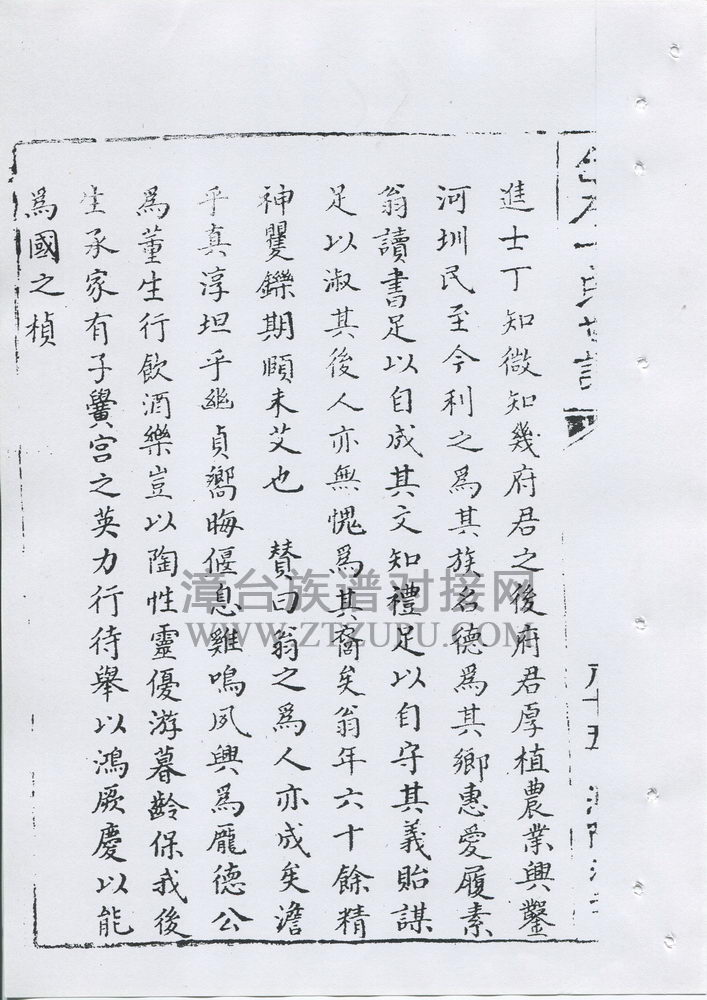 進士丁知微知幾府君之後府君厚植農業興鑿
河圳民至今利之為其族名德為其鄉惠愛履素
翁讀書足以自成其文知禮足以自守其義貽謀
足以淑其後人亦無愧為其裔矣翁年六十餘精
神矍鑠期頤未艾也 贊曰翁之為人亦成矣澹
乎真淳坦乎幽貞嚮晦偃息雞鳴夙興為龐德公
為董生行飲酒樂豈以陶性靈優游暮齡保我後
生承家有子黌宮之英力行待舉以鴻厥慶以能
為國之楨
八十五
漳台族谱对接网
WWW.ZTZUPU.COM